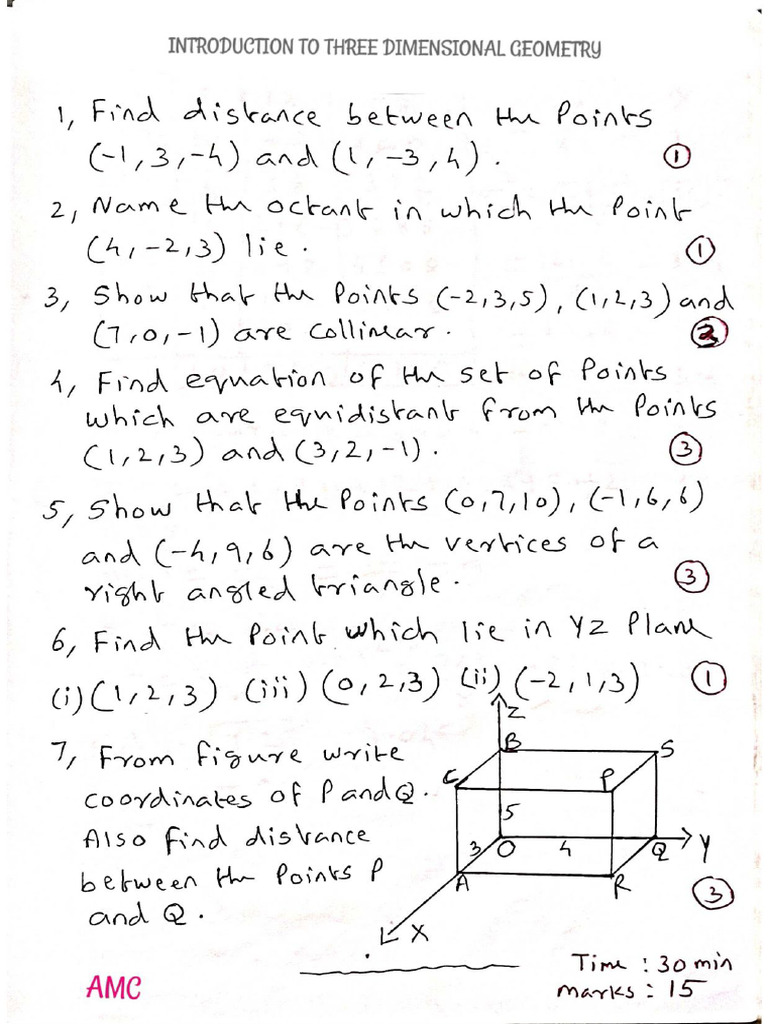 INTRODUCTION TO THREE DIMENSIONAL GEOMETRY
1, Find distance between the Points
(-1, 3, -4) and (1, -3, 4). 1
2, Name the octant in which the Point
(4, -2, 3) lie. 1
3, Show that the Points (-2, 3, 5), (1, 2, 3) and
(7, 0, -1) are collinear. 2
4, Find equation of the set of Points
which are equidistant from the Points
(1, 2, 3) and (3, 2, -1). 3
5, Show that the Points (0, 7, 10), (-1, 6, 6)
and (-4, 9, 6) are the vertices of a
right angled triangle. 3
6, Find the Point which lie in YZ Plane
(i) (1, 2, 3) (iii) (0, 2, 3) (ii) (-2, 1, 3) 1
7, From figure write
coordinates of P and Q.
Also find distance
between the Points P
and Q.
Z
B
S
C
P
5
3
O
4
Q
Y
A
R
3
X
Time : 30 min
marks : 15
AMC